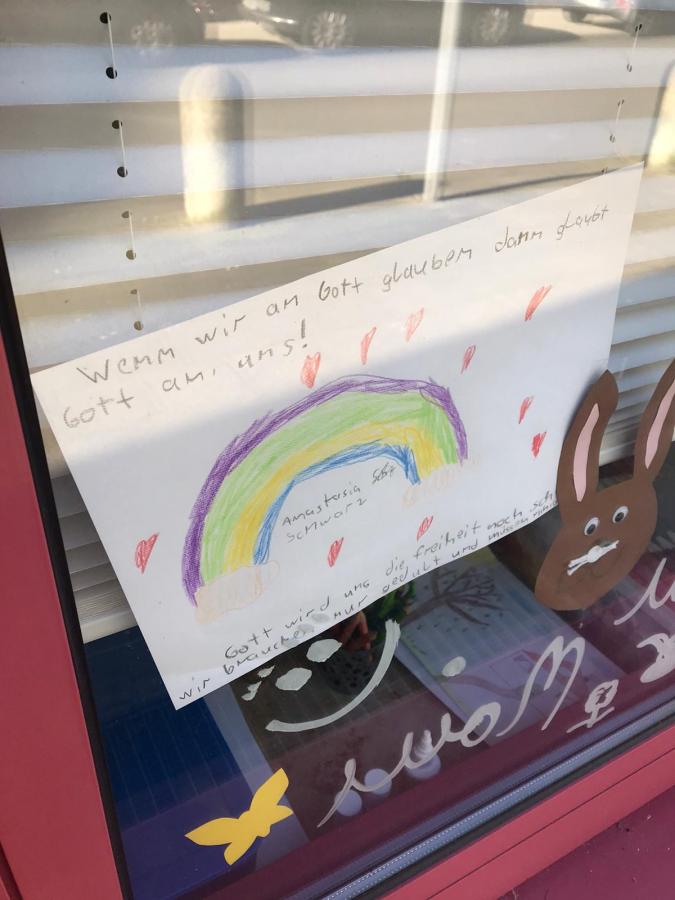 Wenn wir an Gott glauben dann glaubt
Gott an, uns!
Anastasia
Schwarz
Gott wird uns die freiheit noch sch
wir brauchen nur gedult und müssen